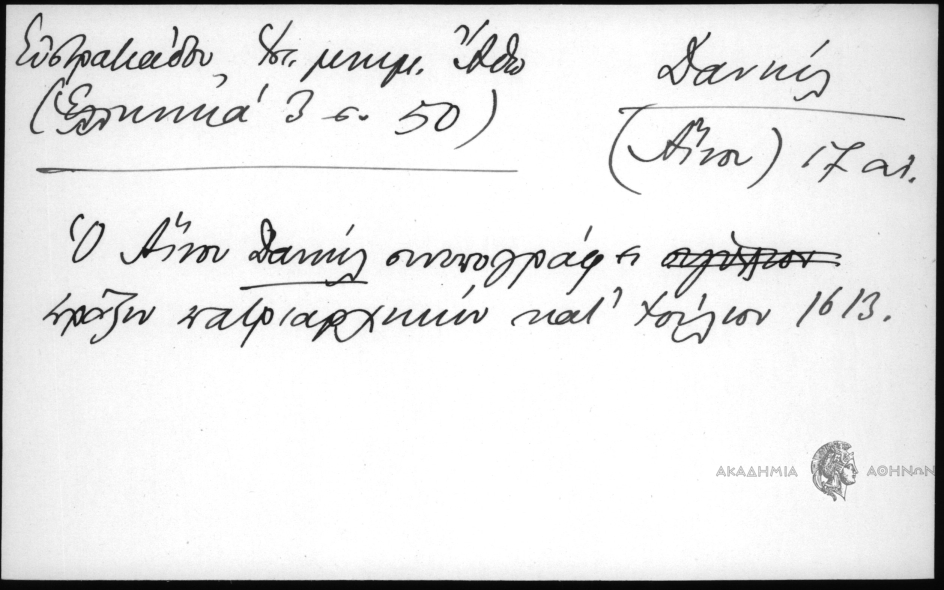 Εὐστρατιάδου, Ἱστ. μνημ. Ἄθω
(Ἑλληνικά 3 σ. 50)
Δανιήλ
(Αἴνου) 17 αἰ.
Ὁ Αἴνου Δανιήλ συνυπογράφει
πρᾶξιν πατριαρχικήν κατ' Ἰούλιον 1613.
ΑΚΑΔΗΜΙΑ ΑΘΗΝΩΝ